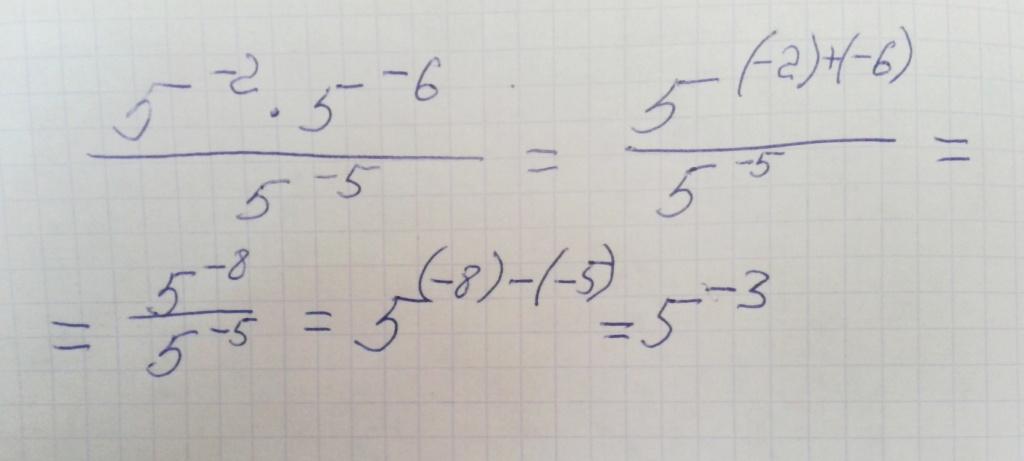 5⁻² · 5⁻⁶ / 5⁻⁵ = 5⁽⁻²⁾⁺⁽⁻⁶⁾ / 5⁻⁵ =
= 5⁻⁸ / 5⁻⁵ = 5⁽⁻⁸⁾⁻⁽⁻⁵⁾ = 5⁻³